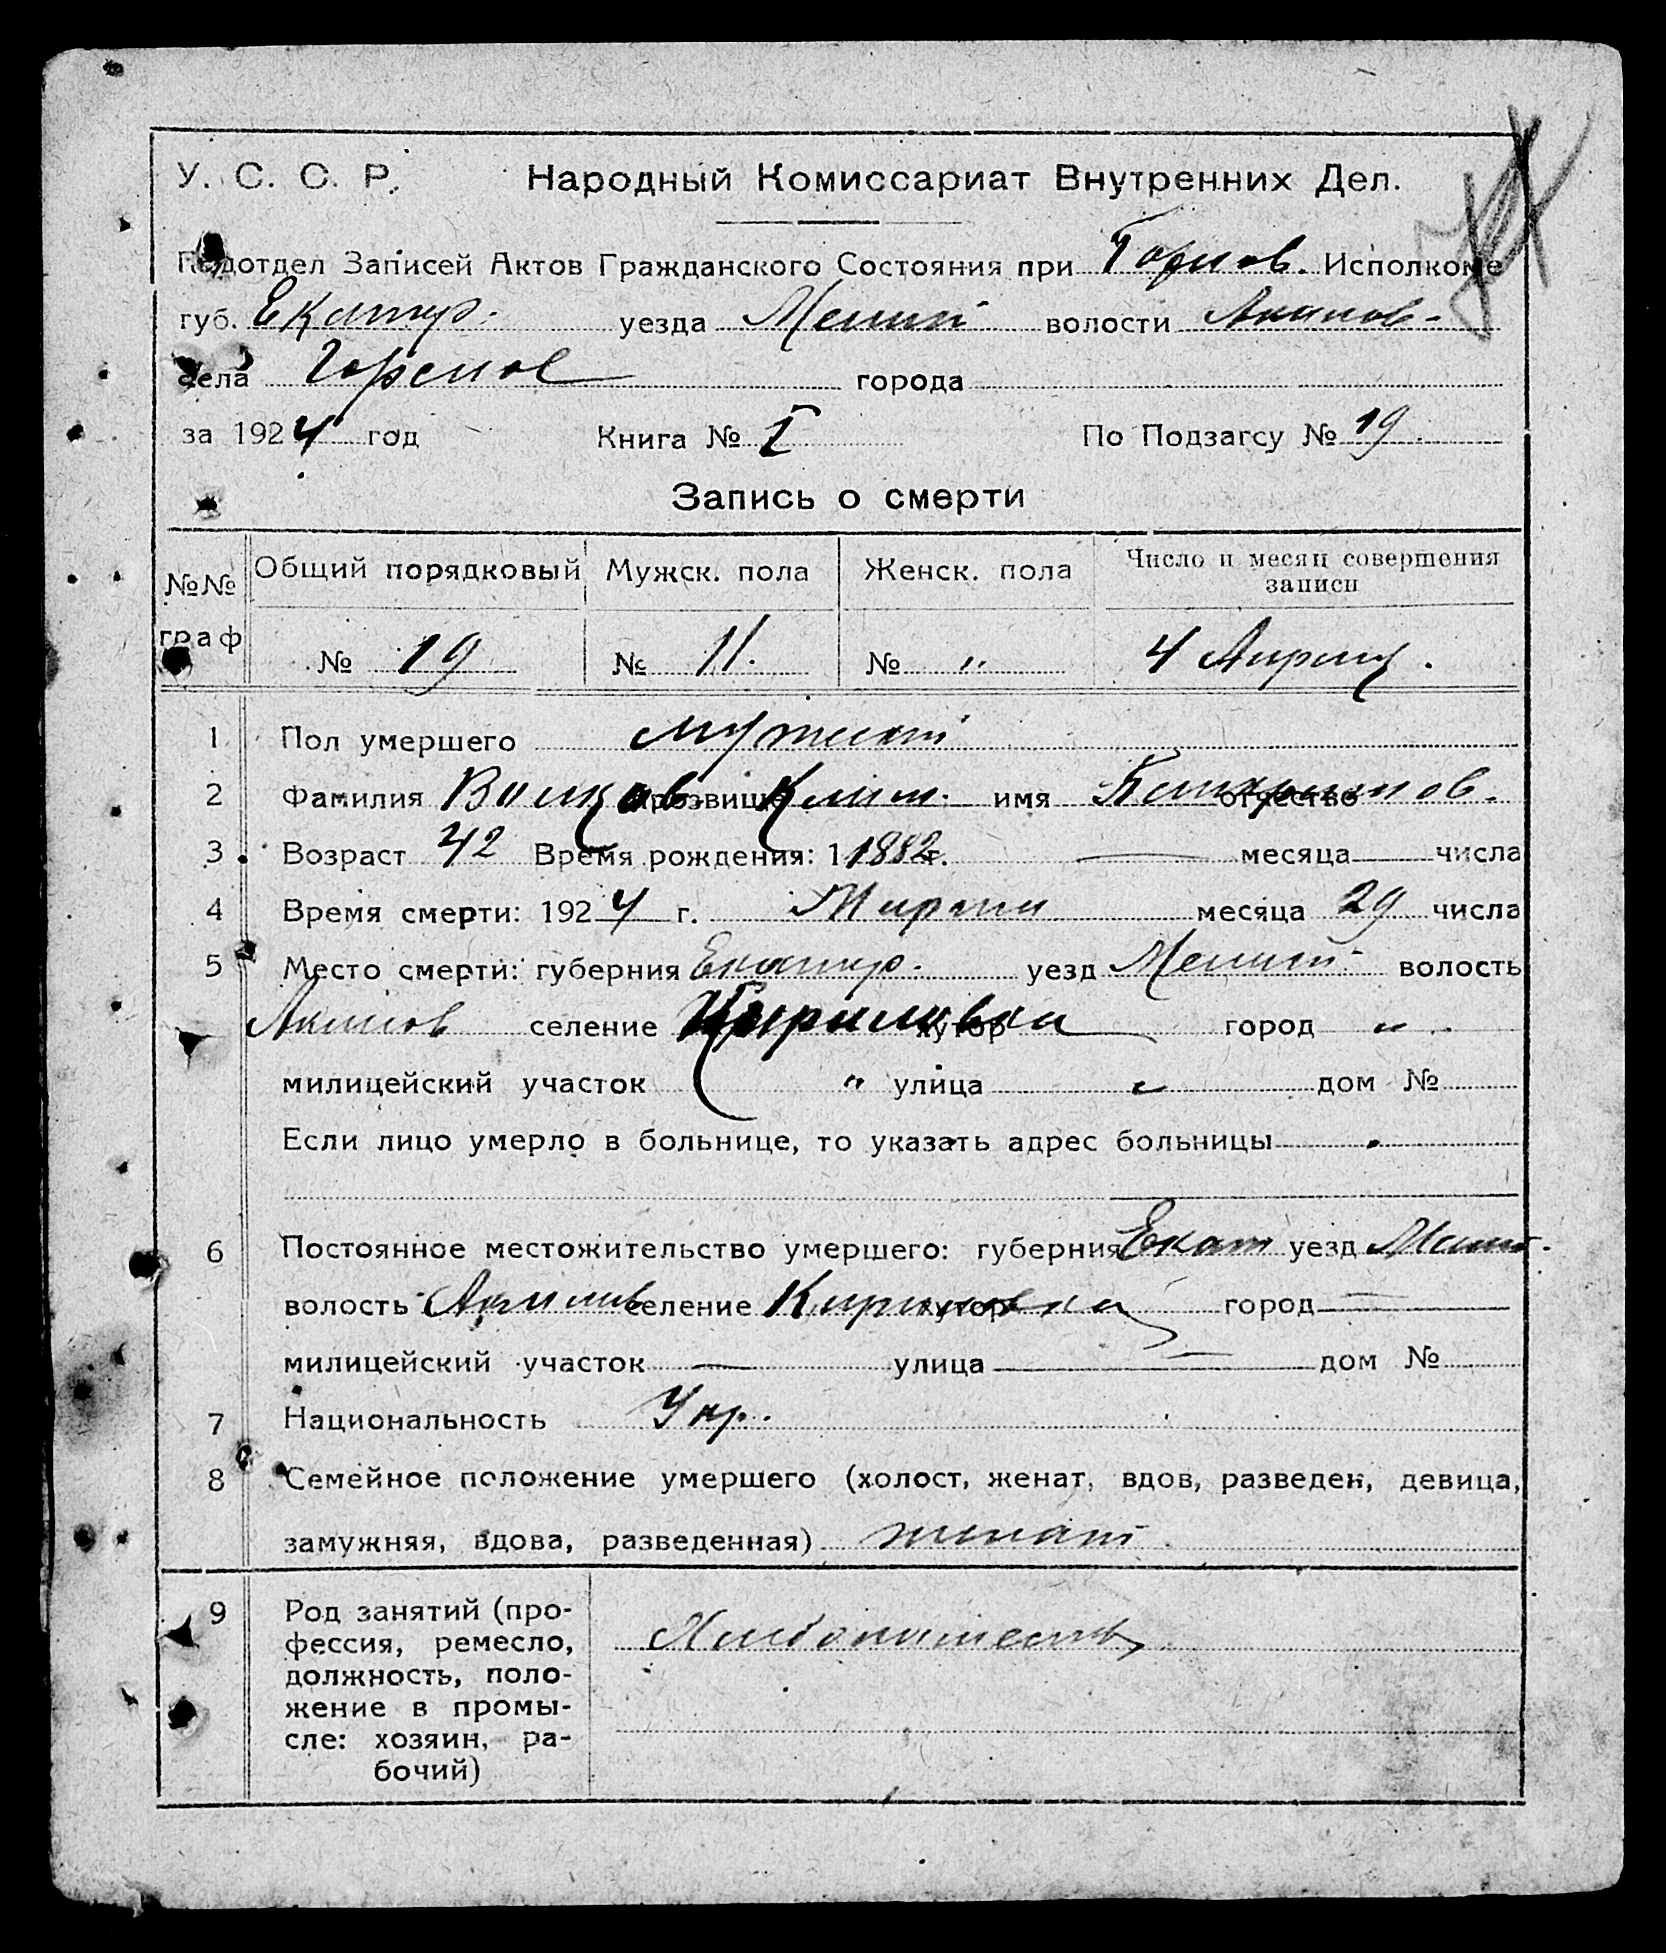 У. С. С. Р. Народный Комиссариат Внутренних Дел.
Подотдел Записей Актов Гражданского Состояния при Исполкоме
губ. Екатер. уезда Мелит волости Акимов-
села Горелое города
за 1924 год Книга № I По Подзагсу № 19
Запись о смерти
№№ граф Общий порядковый Мужск. пола Женск. пола Число и месяц совершения записи
№ 19 № 11. № " 4 Апреля.
1 Пол умершего мужской
2 Фамилия Волков прозвище Клим имя отчество
3 Возраст 42 Время рождения: 1 1882 г. — месяца — числа
4 Время смерти: 1924 г. Марта месяца 29 числа
5 Место смерти: губерния Екатер. уезд Мелит. волость
Акимов селение Кириловка хутор город "
милицейский участок " улица " дом №
Если лицо умерло в больнице, то указать адрес больницы
6 Постоянное местожительство умершего: губерния Екат уезд Мелит.
волость Акимов селение Кириловка хутор город —
милицейский участок — улица — дом №
7 Национальность Укр.
8 Семейное положение умершего (холост, женат, вдов, разведен, девица,
замужняя, вдова, разведенная) женат
9 Род занятий (про-
фессия, ремесло,
должность, поло-
жение в промы-
сле: хозяин, ра-
бочий)
Хлебопашество